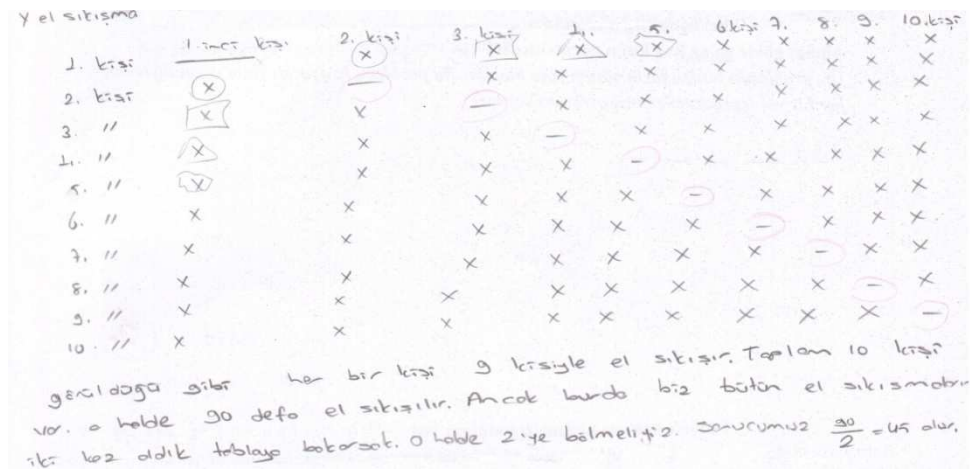 y el sıkışma
1. inci kişi 2. kişi 3. kişi 4. 5. 6 kişi 7. 8. 9. 10. kişi
1. kişi — x x x x x x x x x
2. kişi x — x x x x x x x x
3. " x x — x x x x x x x
4. " x x x — x x x x x x
5. " x x x x — x x x x x
6. " x x x x x — x x x x
7. " x x x x x x — x x x
8. " x x x x x x x — x x
9. " x x x x x x x x — x
10. " x x x x x x x x x —
görüldüğü gibi her bir kişi 9 kişiyle el sıkışır. Toplam 10 kişi
var. o halde 90 defa el sıkışılır. Ancak burda biz bütün el sıkışmaları
iki kez aldık tabloya bakarsak. O halde 2'ye bölmeliyiz. Sonucumuz 90/2 = 45 olur.